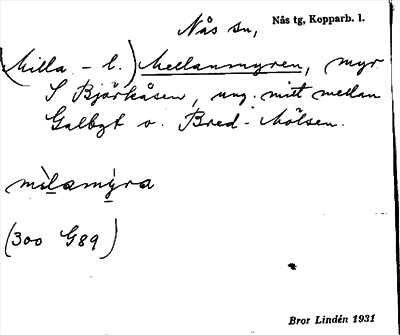 Nås sn, Nås tg, Kopparb. l.
(Milla - l.) Mellanmyren, myr
S Björkåsen, ung. mitt mellan
Galbgt o. Bred-Mölsen.
mìlamýra
(300 G89)
Bror Lindén 1931